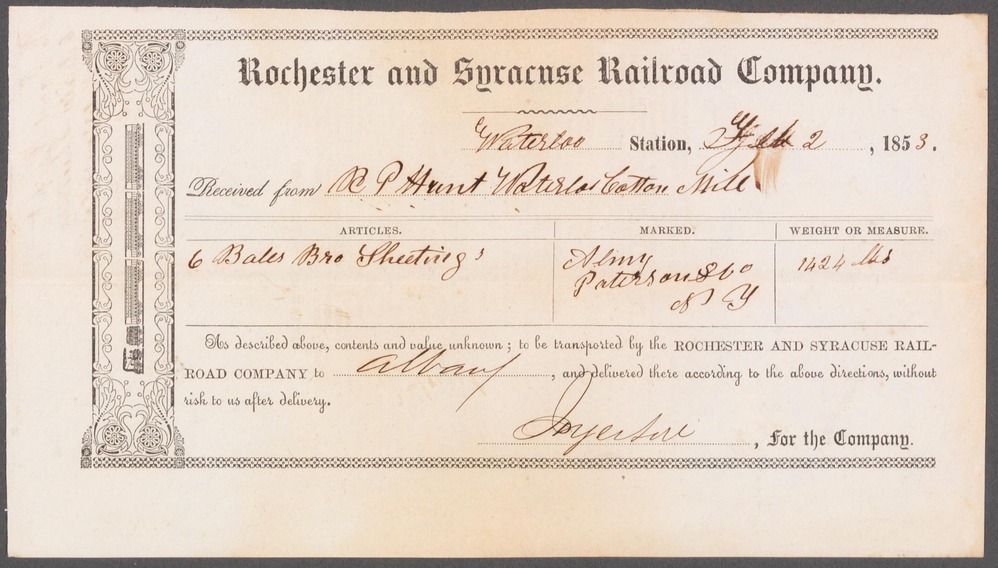 Rochester and Syracuse Railroad Company.
Waterloo Station, 2, 1853.
Received from R P Hunt Waterloo Cotton Mill
ARTICLES. MARKED. WEIGHT OR MEASURE.
6 Bales Bro Sheetings Almy 1424 lbs
Paterson & Co
N Y
As described above, contents and value unknown; to be transported by the ROCHESTER AND SYRACUSE RAIL-
ROAD COMPANY to Albany, and delivered there according to the above directions, without
risk to us after delivery.
, For the Company.